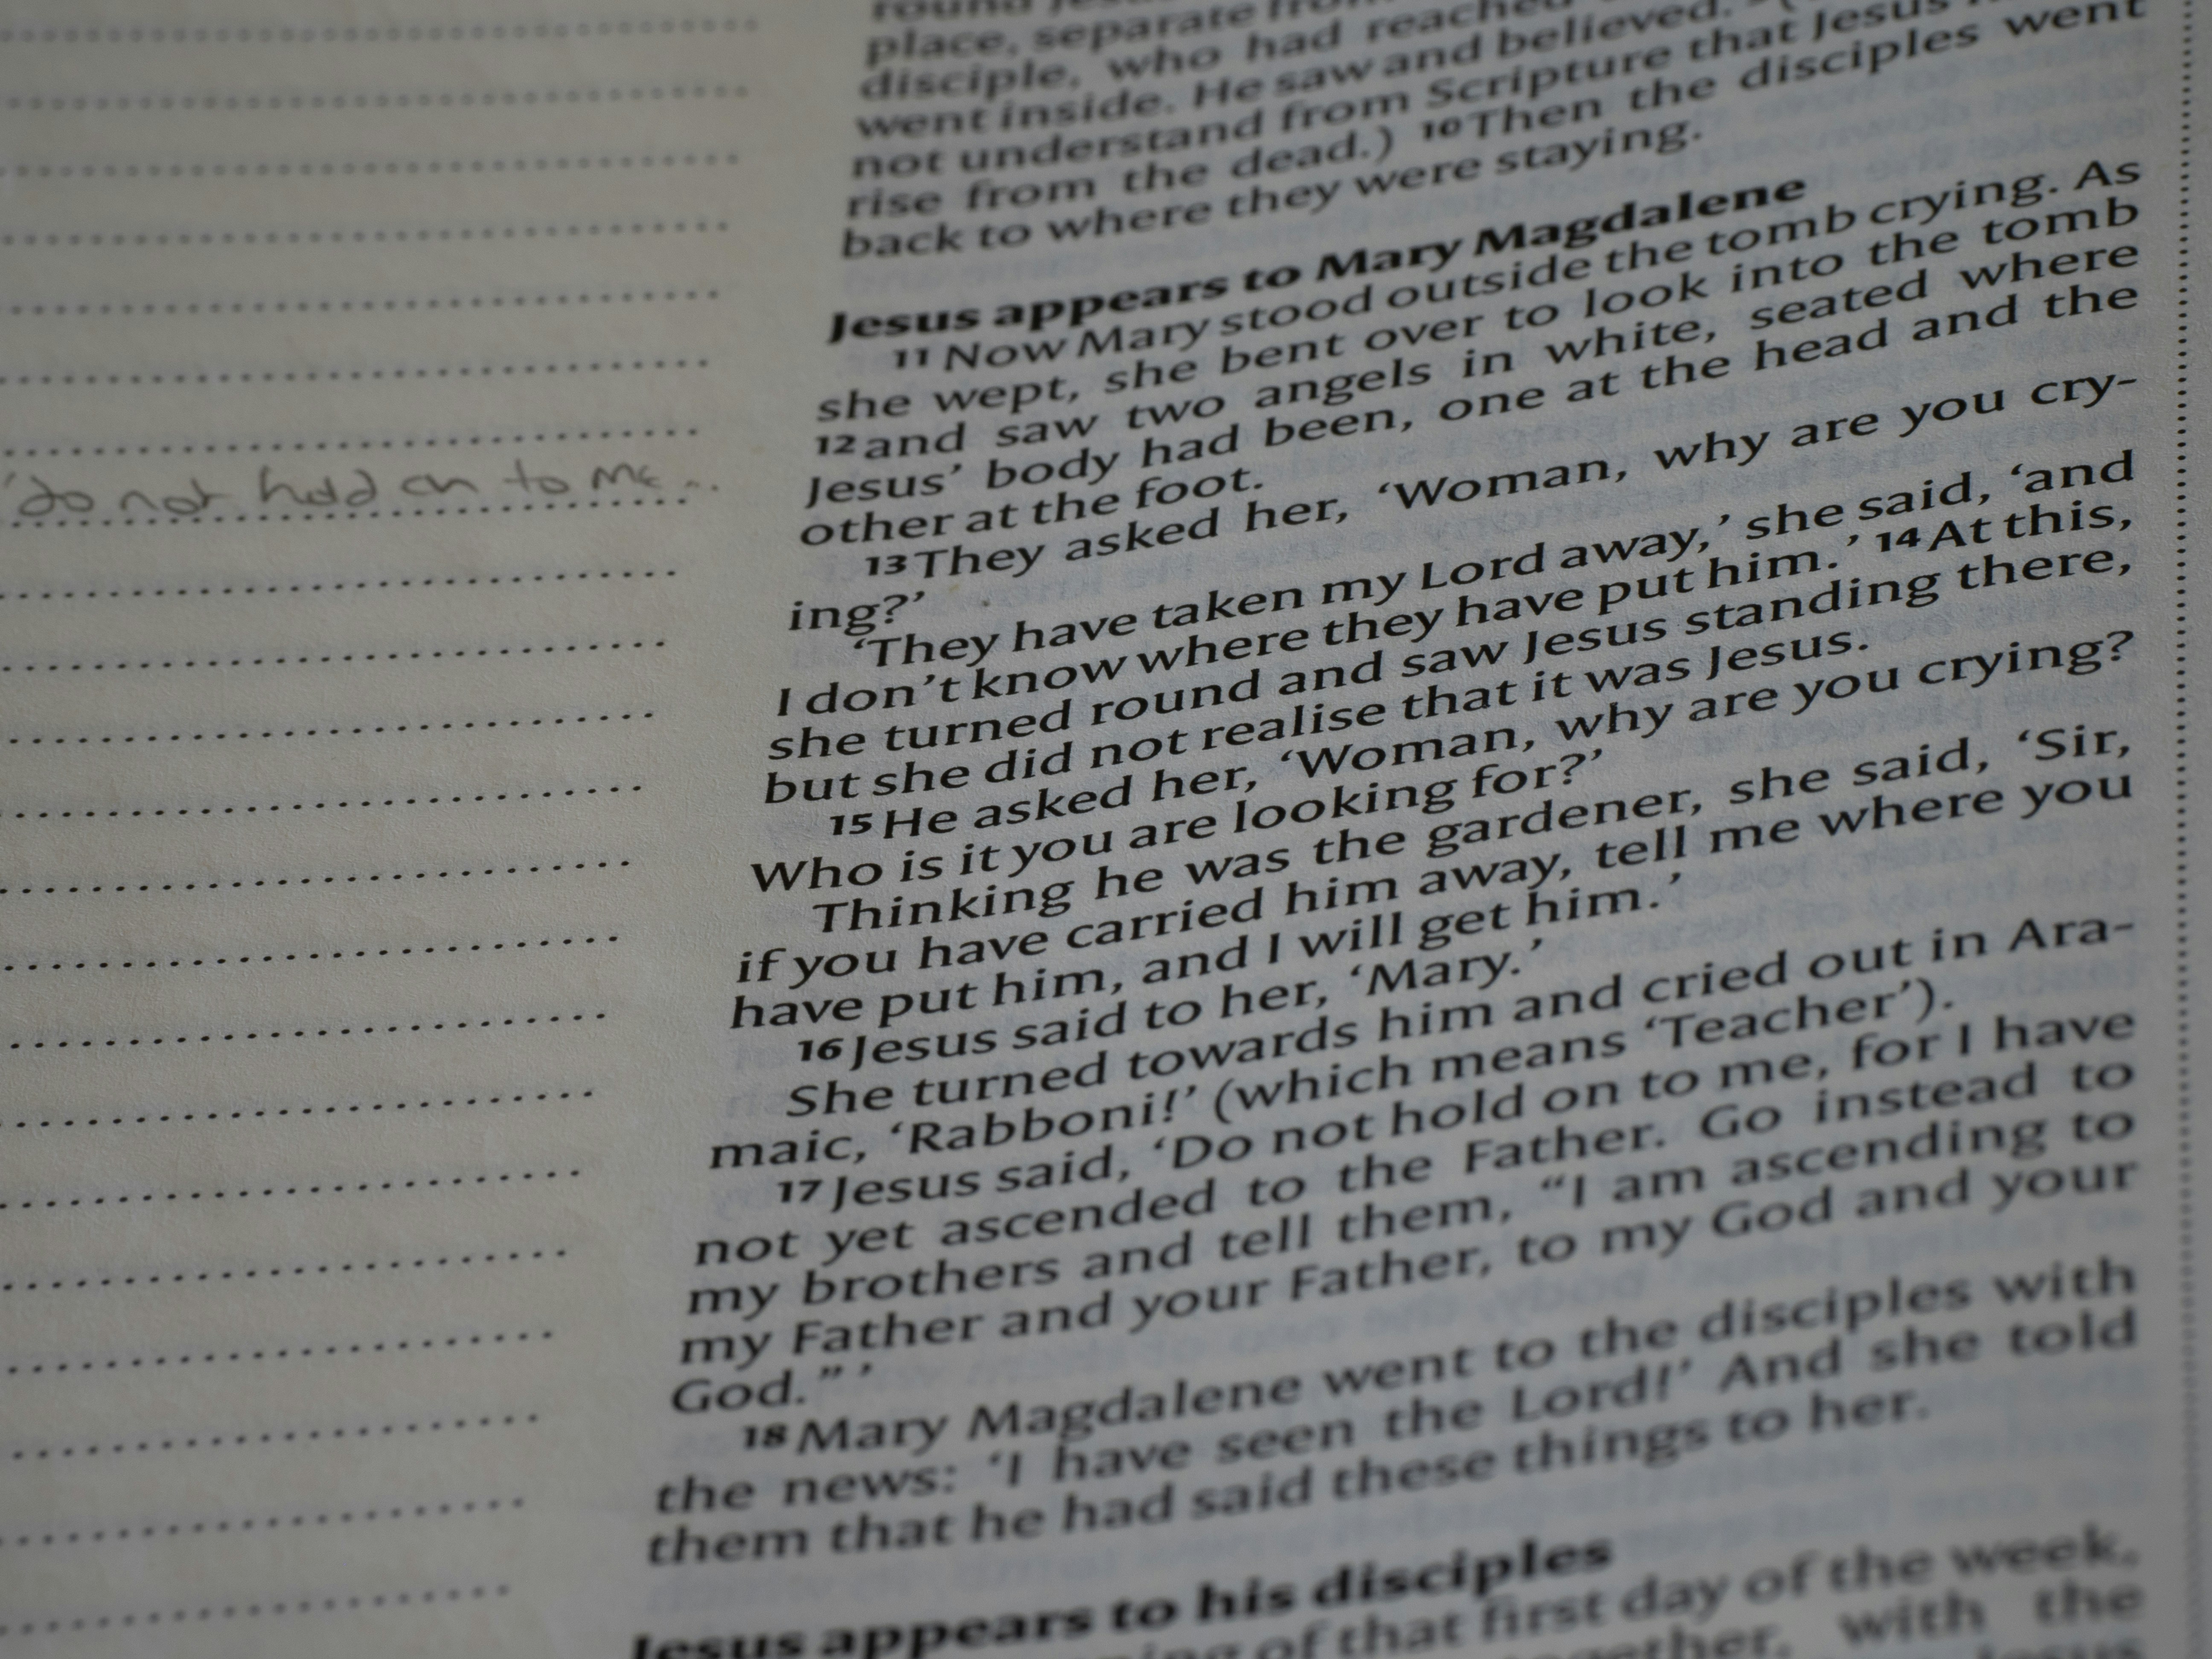 'do not hold on to me...
place, separate
disciple, who had reached
went inside. He saw and believed.
not understand from Scripture that Jesus
rise from the dead.) 10 Then the disciples went
back to where they were staying.
Jesus appears to Mary Magdalene
11 Now Mary stood outside the tomb crying. As
she wept, she bent over to look into the tomb
12 and saw two angels in white, seated where
Jesus’ body had been, one at the head and the
other at the foot.
13 They asked her, ‘Woman, why are you cry-
ing?’
‘They have taken my Lord away,’ she said, ‘and
I don’t know where they have put him.’ 14 At this,
she turned round and saw Jesus standing there,
but she did not realise that it was Jesus.
15 He asked her, ‘Woman, why are you crying?
Who is it you are looking for?’
Thinking he was the gardener, she said, ‘Sir,
if you have carried him away, tell me where you
have put him, and I will get him.’
16 Jesus said to her, ‘Mary.’
She turned towards him and cried out in Ara-
maic, ‘Rabboni!’ (which means ‘Teacher’).
17 Jesus said, ‘Do not hold on to me, for I have
not yet ascended to the Father. Go instead to
my brothers and tell them, “I am ascending to
my Father and your Father, to my God and your
God.” ’
18 Mary Magdalene went to the disciples with
the news: ‘I have seen the Lord!’ And she told
them that he had said these things to her.
Jesus appears to his disciples
of that first day of the week,
with the